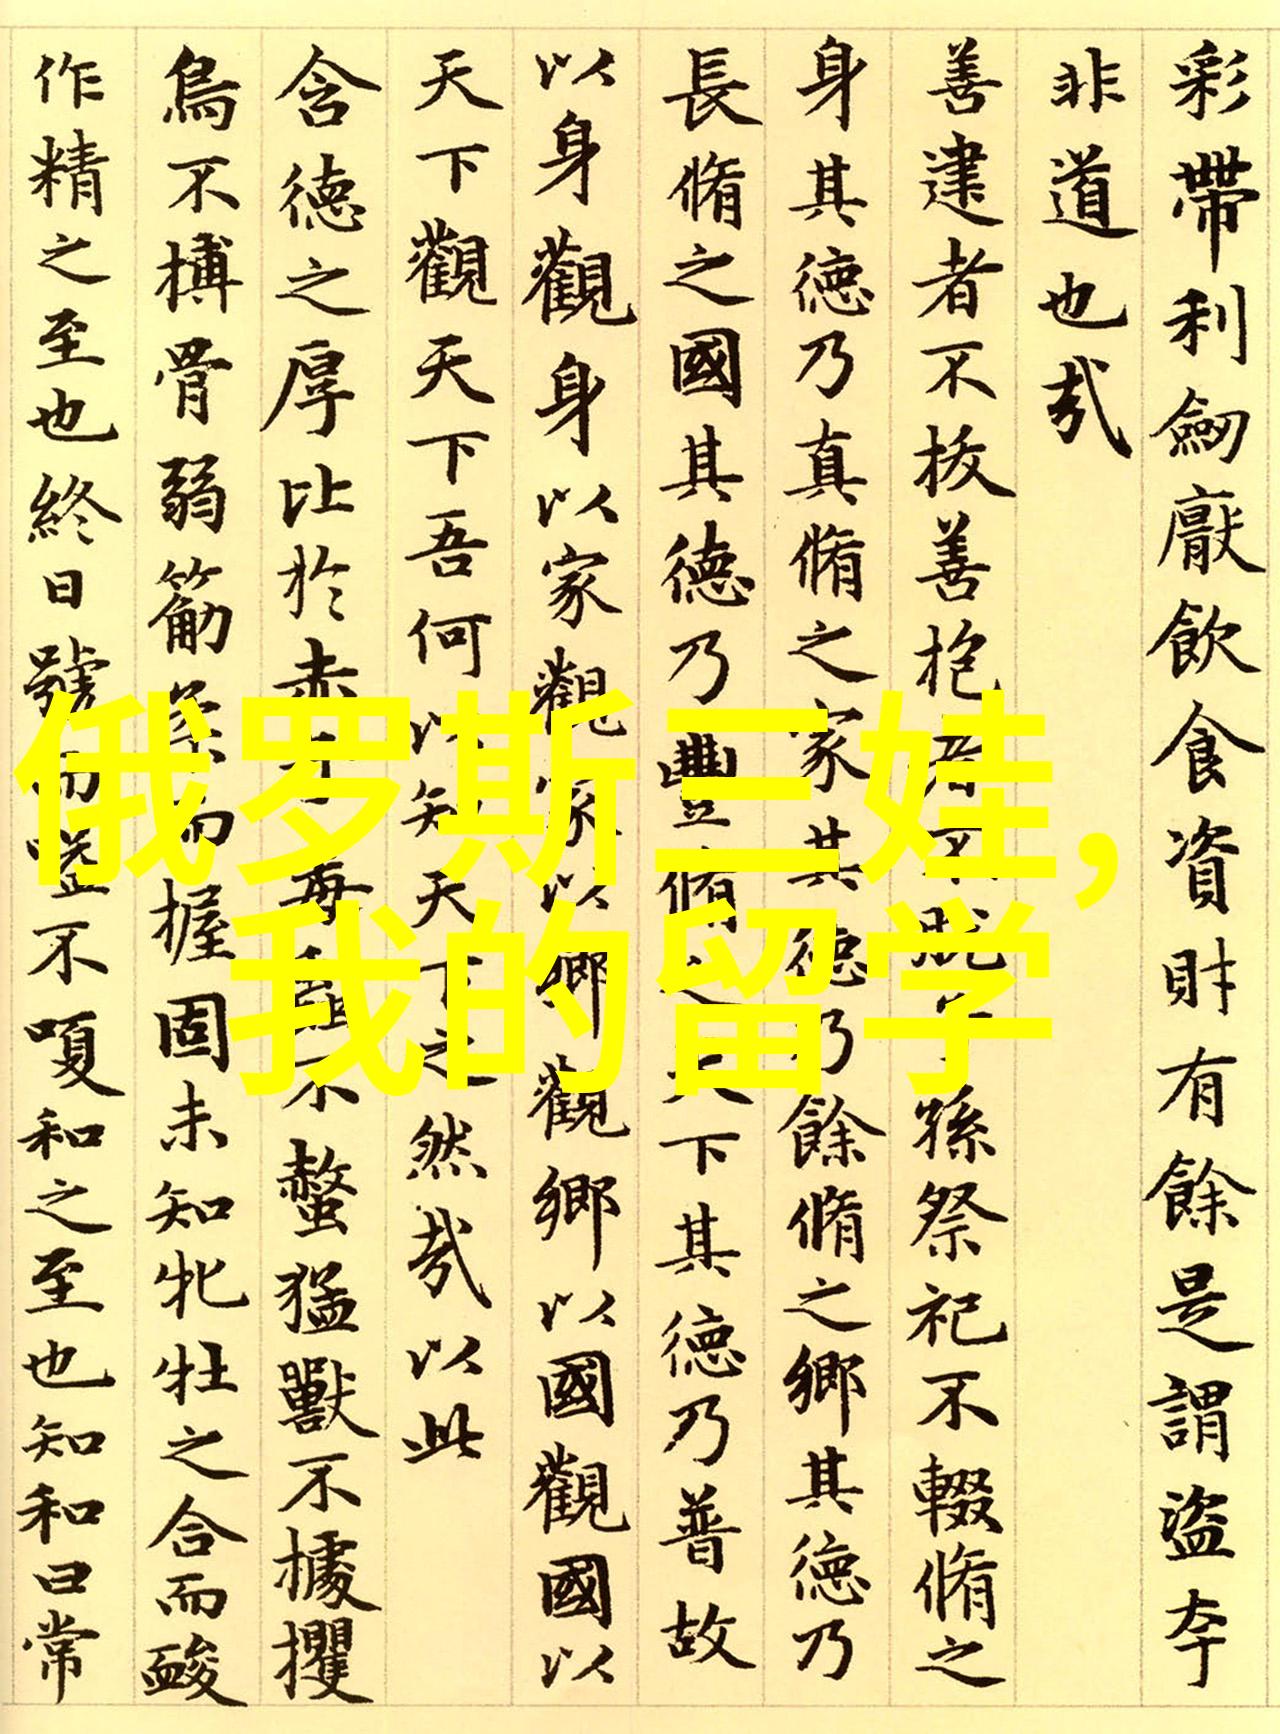 彩帶利劒厭飲食資財有餘是謂盜夸
非道也㢤
善建者不拔善抱者不脫子孫祭祀不輟脩之
身其德乃真脩之家其德乃餘脩之鄉其德乃
長脩之國其德乃豐脩之天下其德乃普故
以身觀身以家觀家以鄉觀鄉以國觀國以
天下觀天下吾何以知天下之然㢤以此
含德之厚比於赤子毒蟲不螫猛獸不據攫
鳥不搏骨弱筋柔而握固未知牝牡之合而䘒
作精之至也終日號而嗌不嗄和之至也知和曰常
俄罗斯三娃，
我的留学